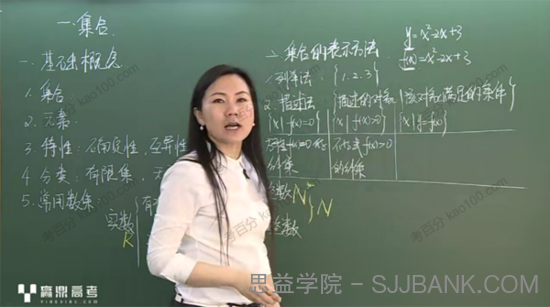 一. 集合.
一. 基本概念
1. 集合
2. 元素
3. 特性: 确定性, 互异性
4. 分类: 有限集, 无
5. 常用数集
实数
R
有
整数
N*
N
二. 集合的表示方法
1. 列举法 {1.2.3}
2. 描述法 {描述的对象 | 该对象满足的条件}
{x | f(x)=0} {x | f(x)>0} {x | y=f(x)}
方程f(x)=0
的解集
不等式f(x)>0
的解集
y=x²-2x+3
f(x)=x²-2x+3
考百分 kao100.com
赢鼎高考
YINGDINGEDU.COM
思益学院 - SJJBANK.COM